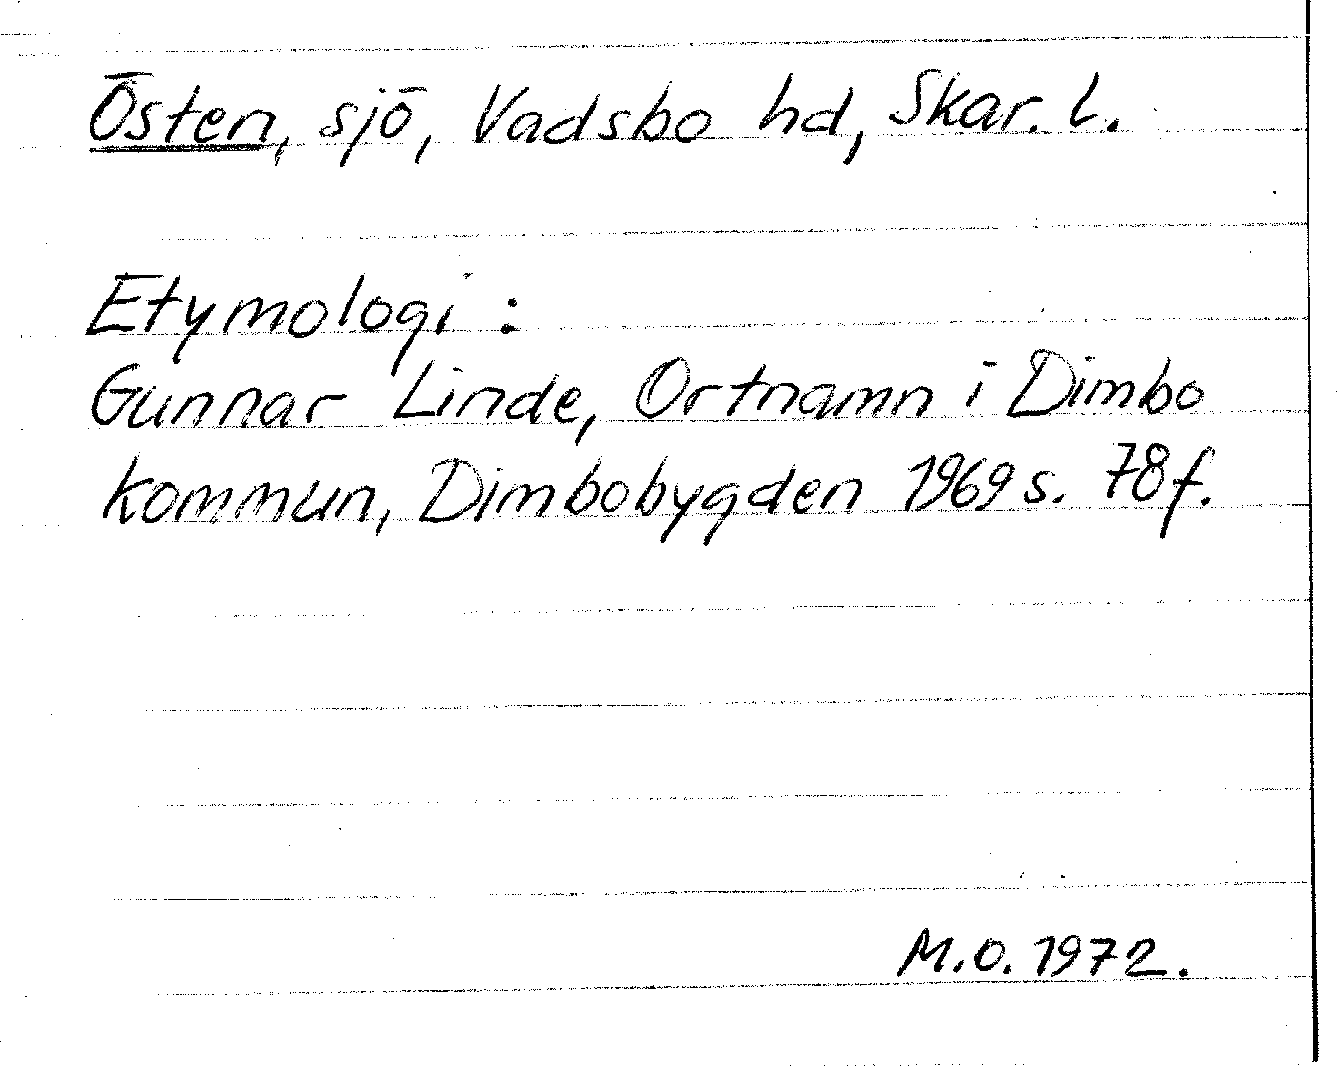 Östen, sjö, Vadsbo hd, Skar. l.
Etymologi:
Gunnar Linde, Ortnamn i Dimbo
kommun, Dimbobygden 1969 s. 78f.
M.O. 1972.